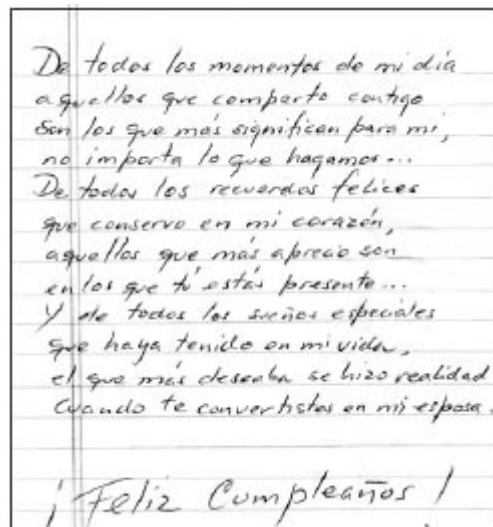 De todos los momentos de mi día
aquellos que comparto contigo
son los que más significan para mi,
no importa lo que hagamos...
De todos los recuerdos felices
que conservo en mi corazón,
aquellos que más aprecio son
en los que tú estás presente...
Y de todos los sueños especiales
que haya tenido en mi vida,
el que más deseaba se hizo realidad
Cuando te convertistes en mi esposa.
¡Feliz Cumpleaños!